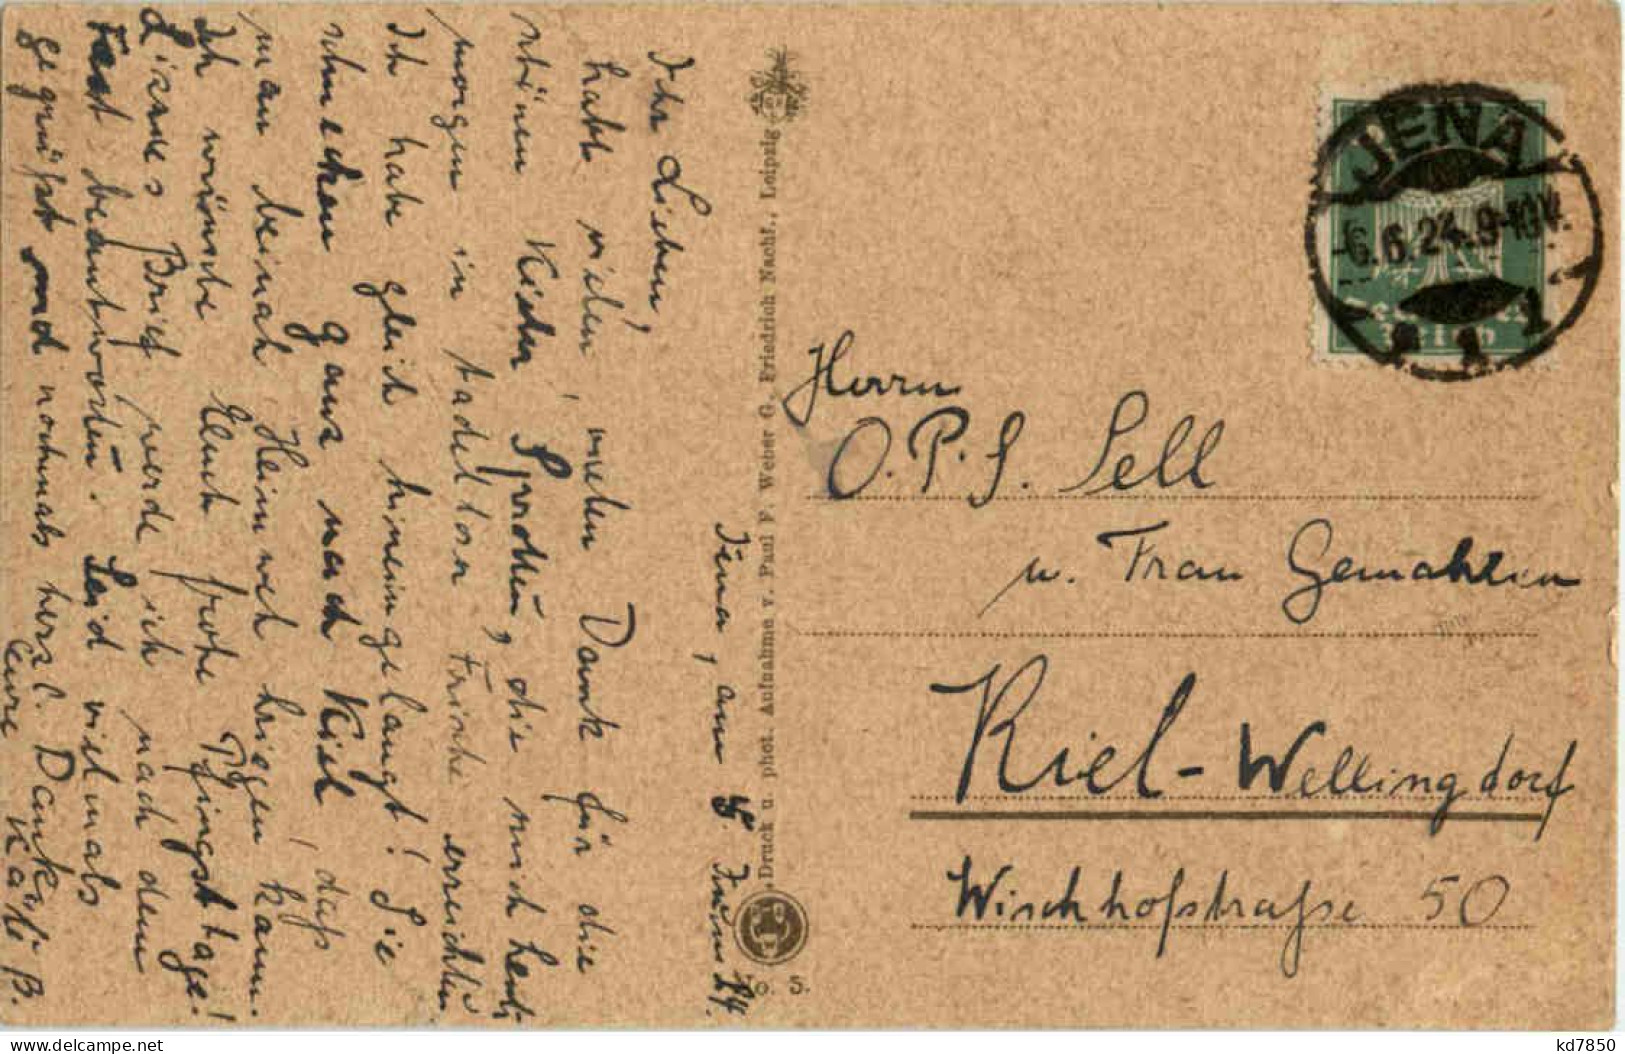 Jena, am 5. Juni 24.
Ihr Lieben,
habt vielen, vielen Dank für die
schönen Kieler Sprotten, die mich heute
morgen in tadellos Frische erreichten
Ich habe gleich hineingelangt! Sie
schmecken ganz nach Kiel, daß
man beinah Heimweh kriegen kann.
Ich wünsche Euch frohe Pfingsttage!
Liesures Brief werde ich nach dem
Fest beantworten. Seid vielmals
gegrüßt und nochmals herzl. Dank
Eure Käte B.
Druck u. phot. Aufnahme v. Paul F. Weber G. Friedrich Nachf., Leipzig
No. S.
JENA
6.6.24.9-10V.
1
Herrn
O. P. S. Sell
u. Frau Gemahlin
Kiel-Wellingdorf
Wischhofstraße 50
kd7850